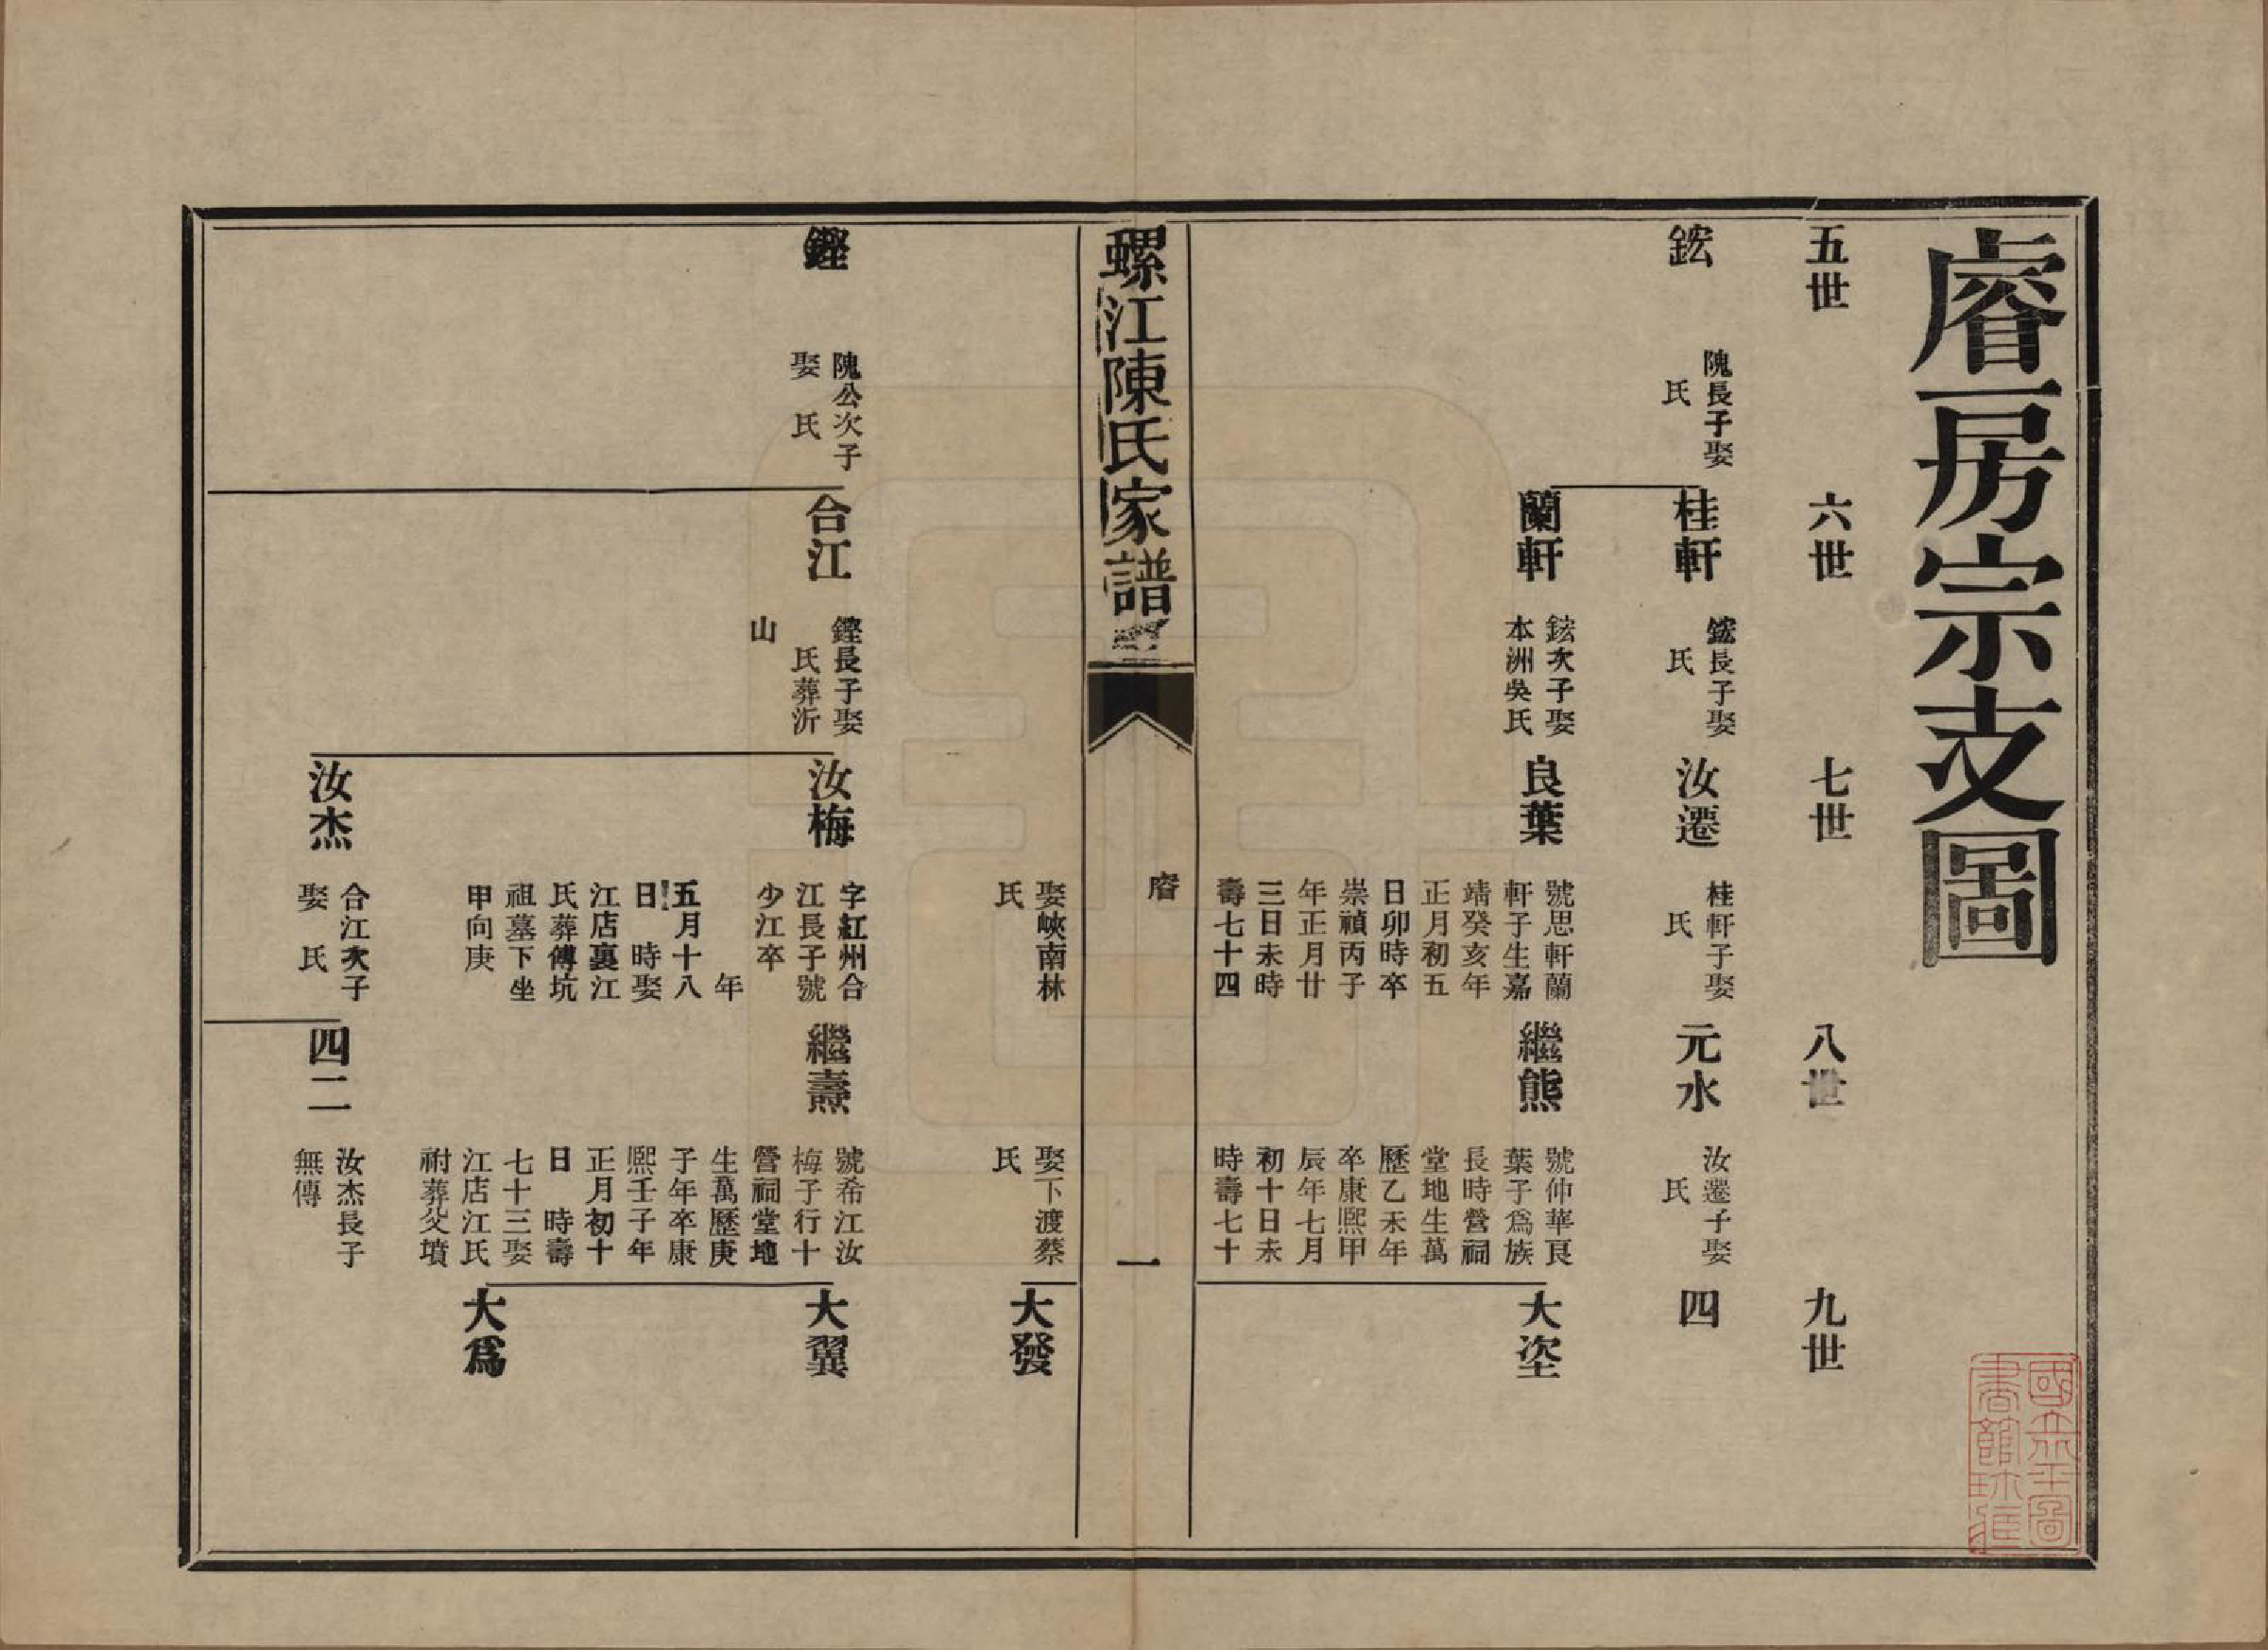 睿房宗支圖
五世
六世
七世
八世
九世
鋐
隗長子娶
氏
桂軒
鋐長子娶
氏
汝遷
桂軒子娶
氏
元水
汝遷子娶
氏
四
蘭軒
鋐次子娶
本洲吳氏
良葉
號思軒蘭
軒子生嘉
靖癸亥年
正月初五
日卯時卒
崇禎丙子
年正月廿
三日未時
壽七十四
繼熊
號仲華良
葉子爲族
長時營祠
堂地生萬
歷乙未年
卒康熙甲
辰年七月
初十日未
時壽七十
大垐
螺江陳氏家譜
睿
一
娶峽南林
氏
娶下渡蔡
氏
大發
鏗
隗公次子
娶 氏
合江
鏗長子娶
氏葬沂
山
汝梅
字紅州合
江長子號
少江卒
年
五月十八
日 時娶
江店裏江
氏葬傅坑
祖墓下坐
甲向庚
繼燾
號希江汝
梅子行十
營祠堂地
生萬歷庚
子年卒康
熙壬子年
正月初十
日 時壽
七十三娶
江店江氏
祔葬父墳
大翼
大爲
汝杰
合江次子
娶 氏
四二
汝杰長子
無傳
國立北平圖
書館珍藏